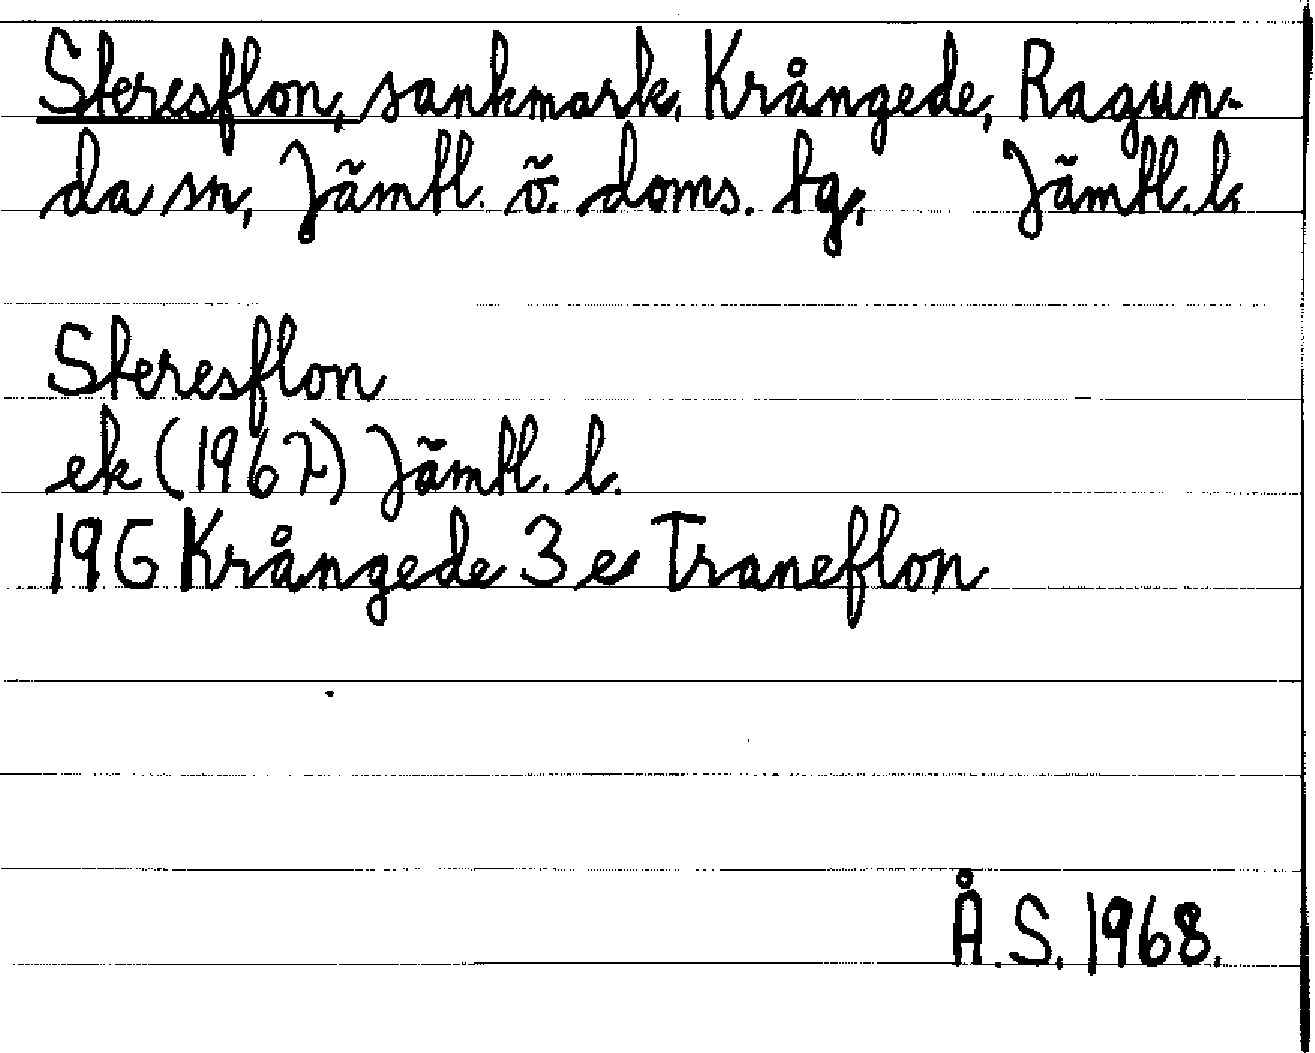 Steresflon, sankmark, Krångede, Ragun-
da sn, Jämtl. ö. doms. tg, Jämtl. l.
Steresflon
ek (1967) Jämtl. l.
19G Krångede 3 e Traneflon
Å.S. 1968.